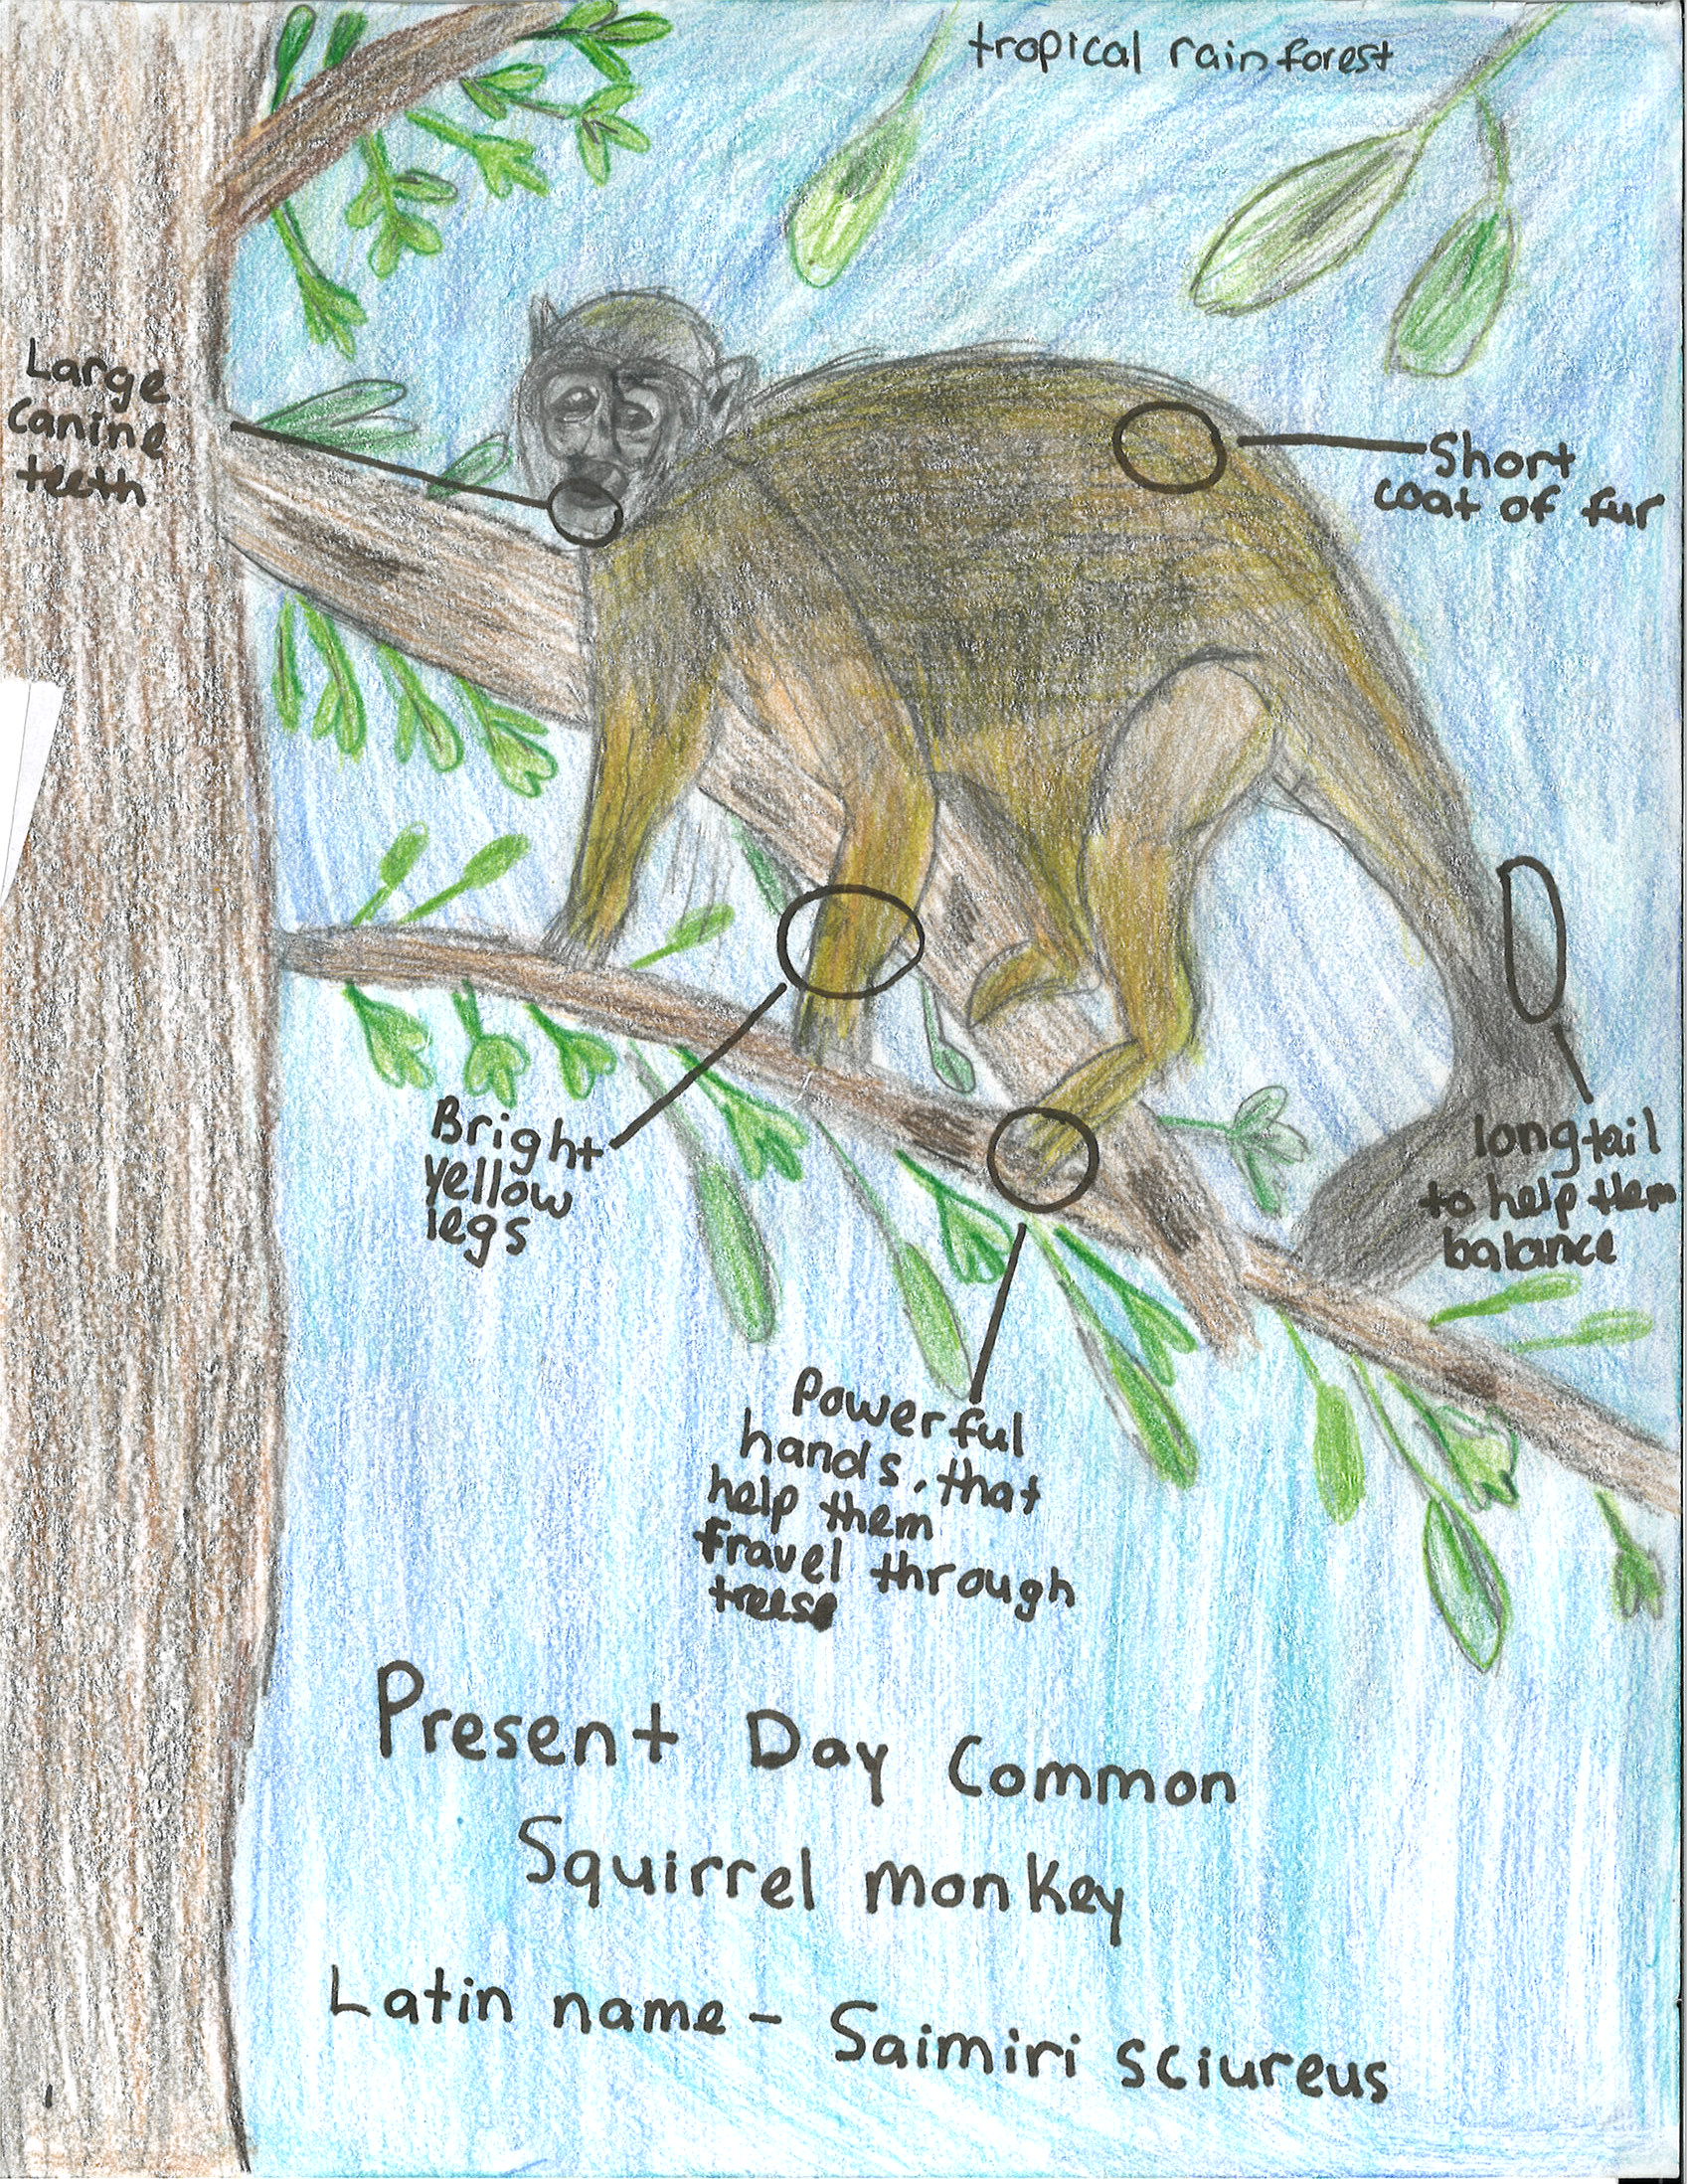 tropical rainforest
Large
canine
teeth
Short
coat of fur
Bright
yellow
legs
long tail
to help them
balance
Powerful
hands, that
help them
travel through
trees
Present Day Common
Squirrel monkey
Latin name - Saimiri sciureus